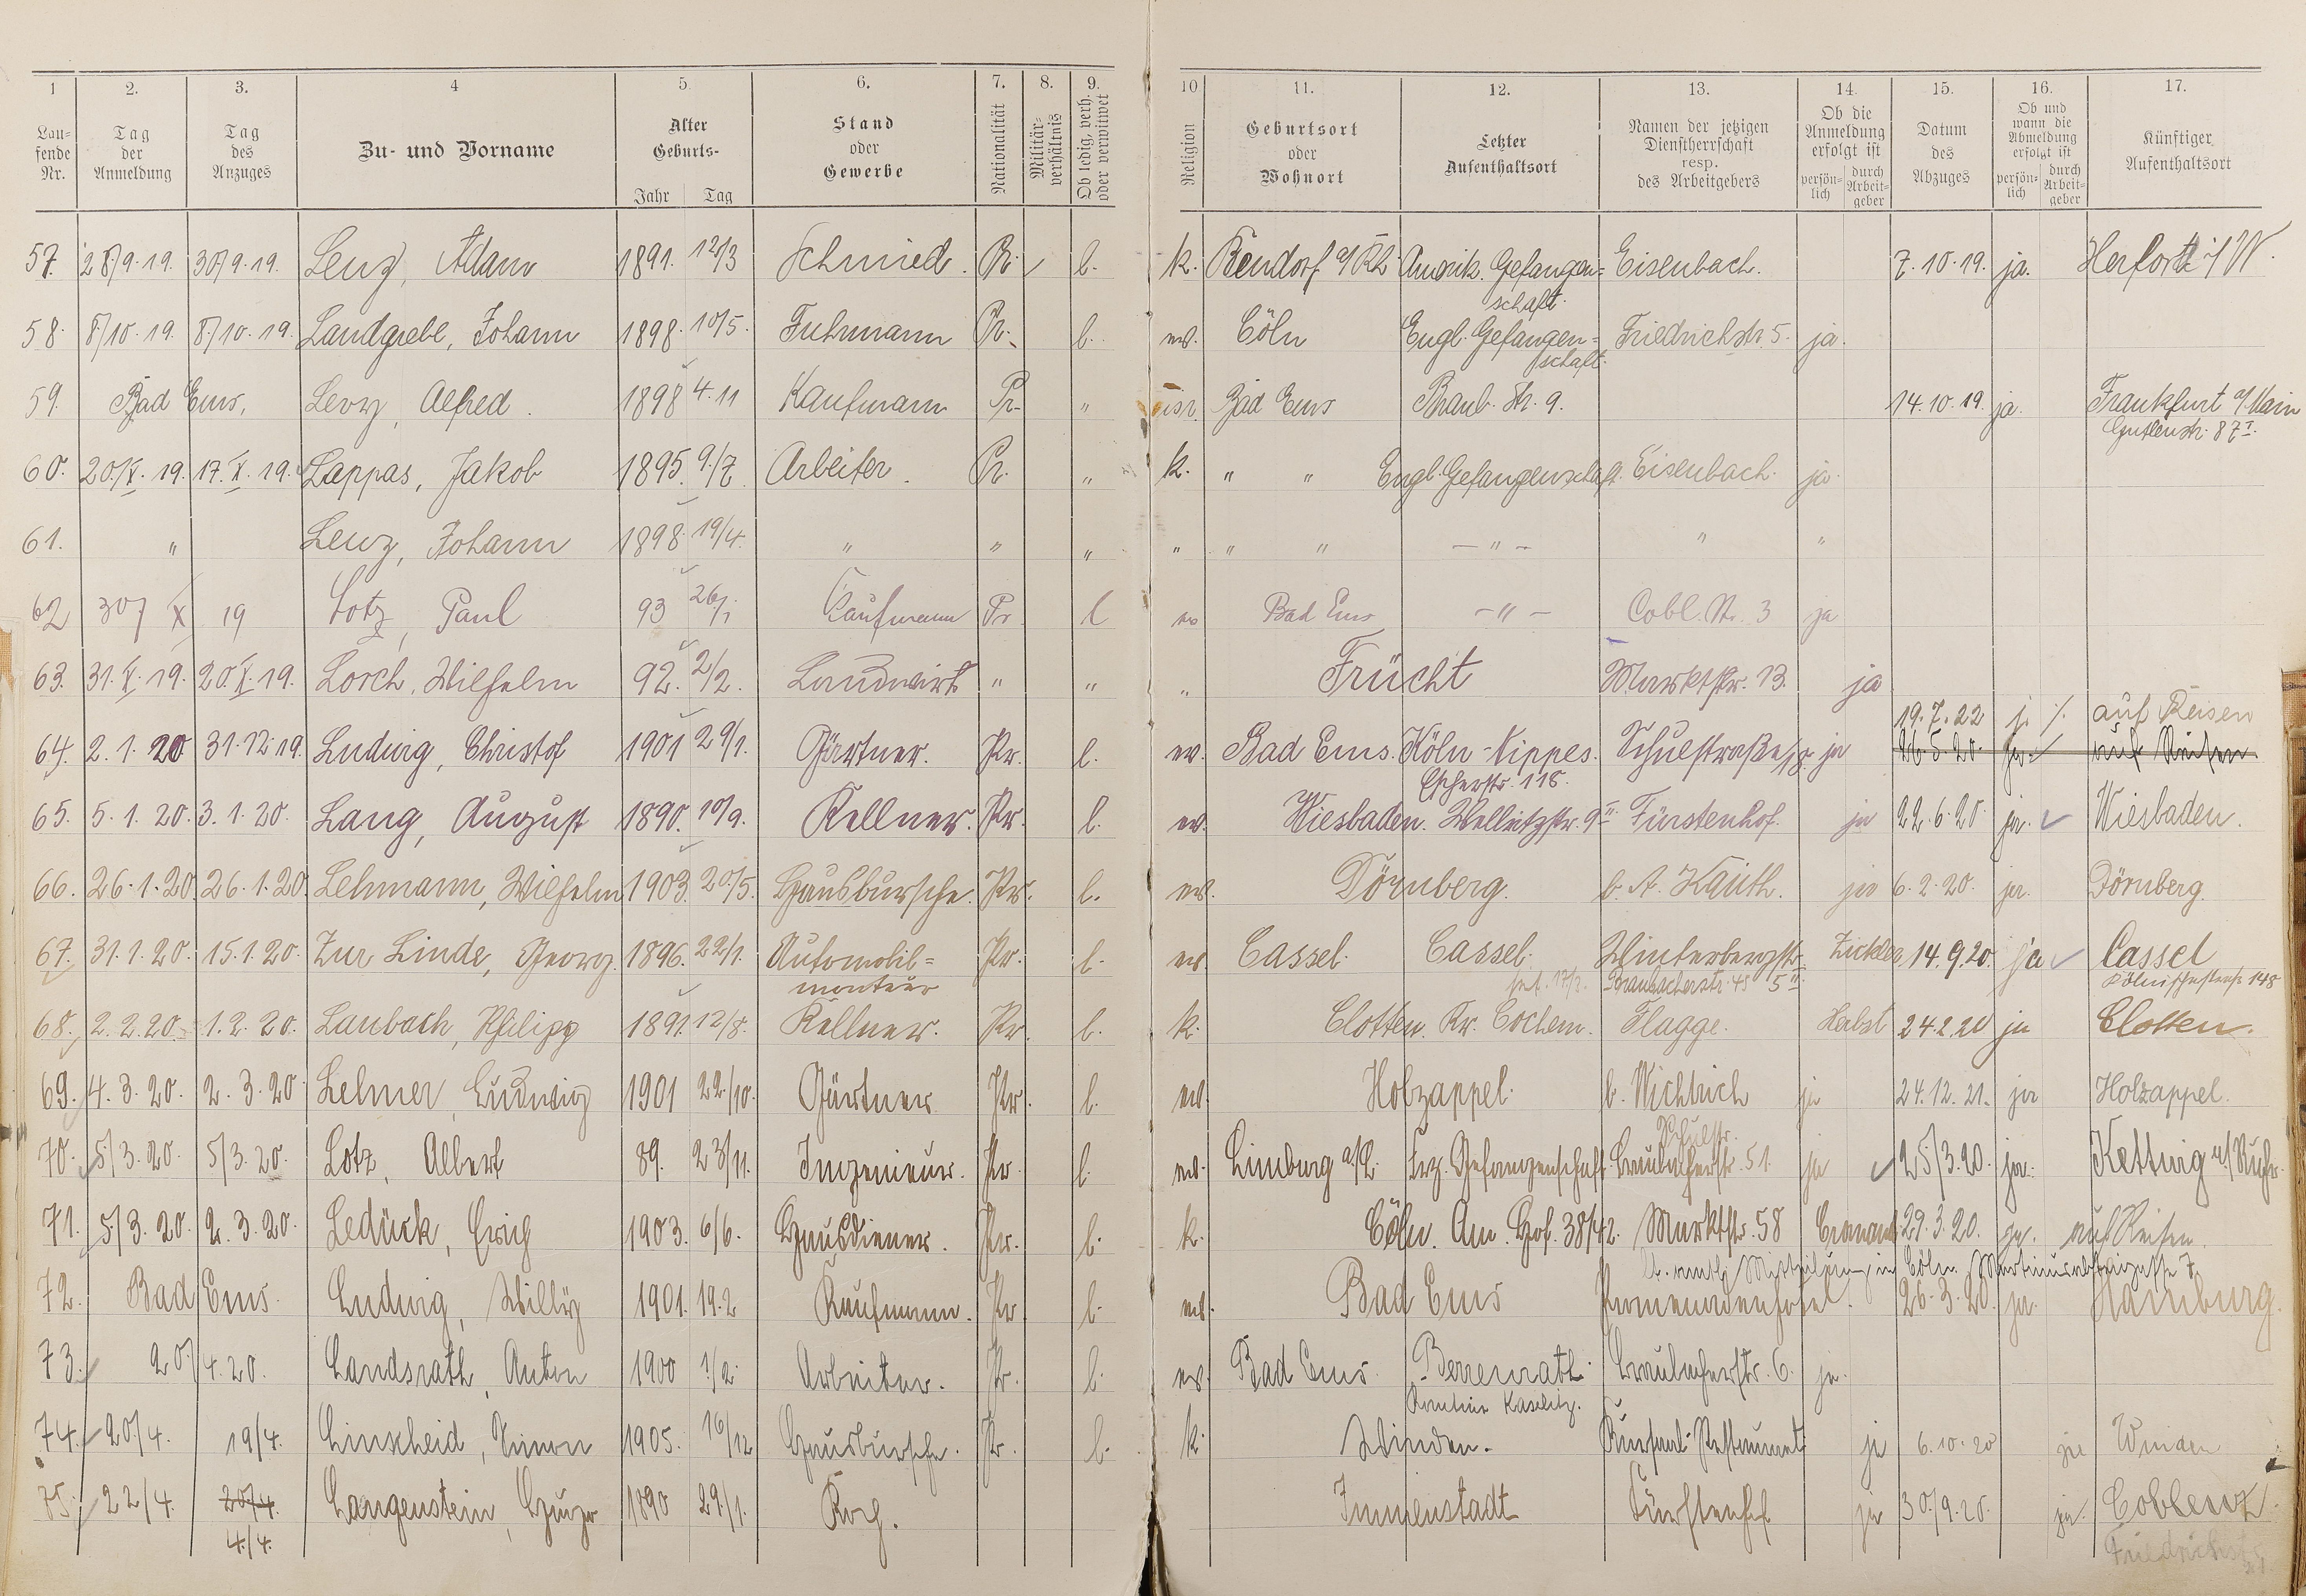 1 2. 3. 4 5. 6. 7. 8. 9. 10 11. 12. 13. 14. 15. 16. 17.
Lau-fende Nr. Tag der Anmeldung Tag des Anzuges Zu- und Vorname Alter Geburts- Jahr Tag Stand oder Gewerbe Nationalität Militär-verhältnis Ob ledig, verh. oder verwitwet Religion Geburtsort oder Wohnort Letzter Aufenthaltsort Namen der jetzigen Dienstherrschaft resp. des Arbeitgebers Ob die Anmeldung erfolgt ist persön-lich durch Arbeit-geber Datum des Abzuges Ob und wann die Abmeldung erfolgt ist persön-lich durch Arbeit-geber Künftiger Aufenthaltsort
57. 28/9.19. 30/9.19. Lenz, Adam 1891. 12/3 Schmied. Pr. l. k. Bendorf a/Rh. Amerik. Gefangen= Eisenbach. 7.10.19. ja. Herford i/W.
schaft.
58. 8/10.19. 8/10.19. Landgrebe, Johann 1898. 10/5. Fuhrmann Pr. l. ev. Cöln Engl. Gefangen= Friedrichstr. 5. ja.
schaft.
59. Bad Ems, Levy, Alfred. 1898 4.11 Kaufmann Pr. " isr. Bad Ems Braub. Str. 9. 14.10.19. ja. Frankfurt a/Main
Gutleutstr. 87 I.
60. 20/X.19. 17.X.19. Lappas, Jakob 1895. 9./7. Arbeiter. Pr. " k. " " Engl. Gefangenschaft. Eisenbach. ja.
61. " Lenz, Johann 1898. 19/4. " " " " " " - " - " "
62 30/ X 19 Lotz, Paul 93 26/1 Kaufmann Pr l ev Bad Ems - " - Cobl. Str. 3 ja
63. 31.X.19. 20.X.19. Lorch, Wilhelm 92. 2/2. Landwirt " " " Frücht Marktstr. 13. ja
19.7.22 j. /. auf Reisen
64. 2.1.20 31.12.19. Ludwig, Christof 1901 29/1. Gärtner. Pr. l. ev. Bad Ems. Köln-Nippes. Schulstraße 18. ja 26.5.20. ja. auf Reisen
Escherstr. 118.
65. 5.1.20. 3.1.20. Lang, August 1890. 10/9. Kellner. Pr. l. ev. Wiesbaden. Wellritzstr. 9 II Fürstenhof. ja 22.6.20. ja. Wiesbaden.
66. 26.1.20. 26.1.20. Lehmann, Wilhelm 1903. 20/5. Hausbursche. Pr. l. ev. Dörnberg. b. A. Kauth. ja 6.2.20. ja. Dörnberg.
67. 31.1.20. 15.1.20. Zur Linde, Georg. 1896. 22/1. Automobil= Pr. l. ev. Cassel. Cassel. Winterbergstr. 14.9.20. ja Cassel
monteur Braubacherstr. 45 5 II Kölnischestraße 148
68. 2.2.20. 1.2.20. Laubach, Philipp 1891. 12/8. Kellner. Pr. l. k. Clotten. Kr. Cochem. Flagge. Herbst 24.2.20 ja Clotten.
69. 4.3.20. 2.3.20 Lehner, Ludwig 1901 22/10. Gärtner Pr. l. ev. Holzappel. b. Wichtrich ja 24.12.21. ja Holzappel.
Schulstr.
70. 5/3.20. 5/3.20. Lotz, Albert 89. 23/11. Ingenieur. Pr. l. ev. Limburg a/L. Frz. Gefangenschaft. Braubacherstr. 51. ja 25/3.20. ja. Kettwig a/Ruhr.
71. 5/3.20. 2.3.20. Ledück, Erich 1903. 6/6. Hausdiener. Pr. l. k. Cöln. Am Hof. 38/42. Marktstr. 58 29.3.20. ja. auf Reisen.
lt. amtl. Mitteilung in Cöln. 7.
72. Bad Ems. Ludwig, Willy 1901. 19.2 Kaufmann. Pr. l. ev. Bad Ems Promenadenhotel. 26.3.20. ja. Hamburg.
73. 20/4.20. Landsrath, Anton 1900 1/2. Arbeiter. Pr. l. ev. Bad Ems. Berrenrath. Braubacherstr. 6. ja.
Kantine Kaselitz.
74. 20/4. 19/4. Linscheid, Simon 1905. 16/12 Hausbursche. Pr. l. k. Winden. Kursaal-Restaurant ja 6.10.20 ja Winden
75. 22/4. 20/4. Langenstein, 1890 29/1. Koch. Immenstadt Fürstenhof ja 30/9.20. ja. Coblenz.
4./4. Friedrichstr.